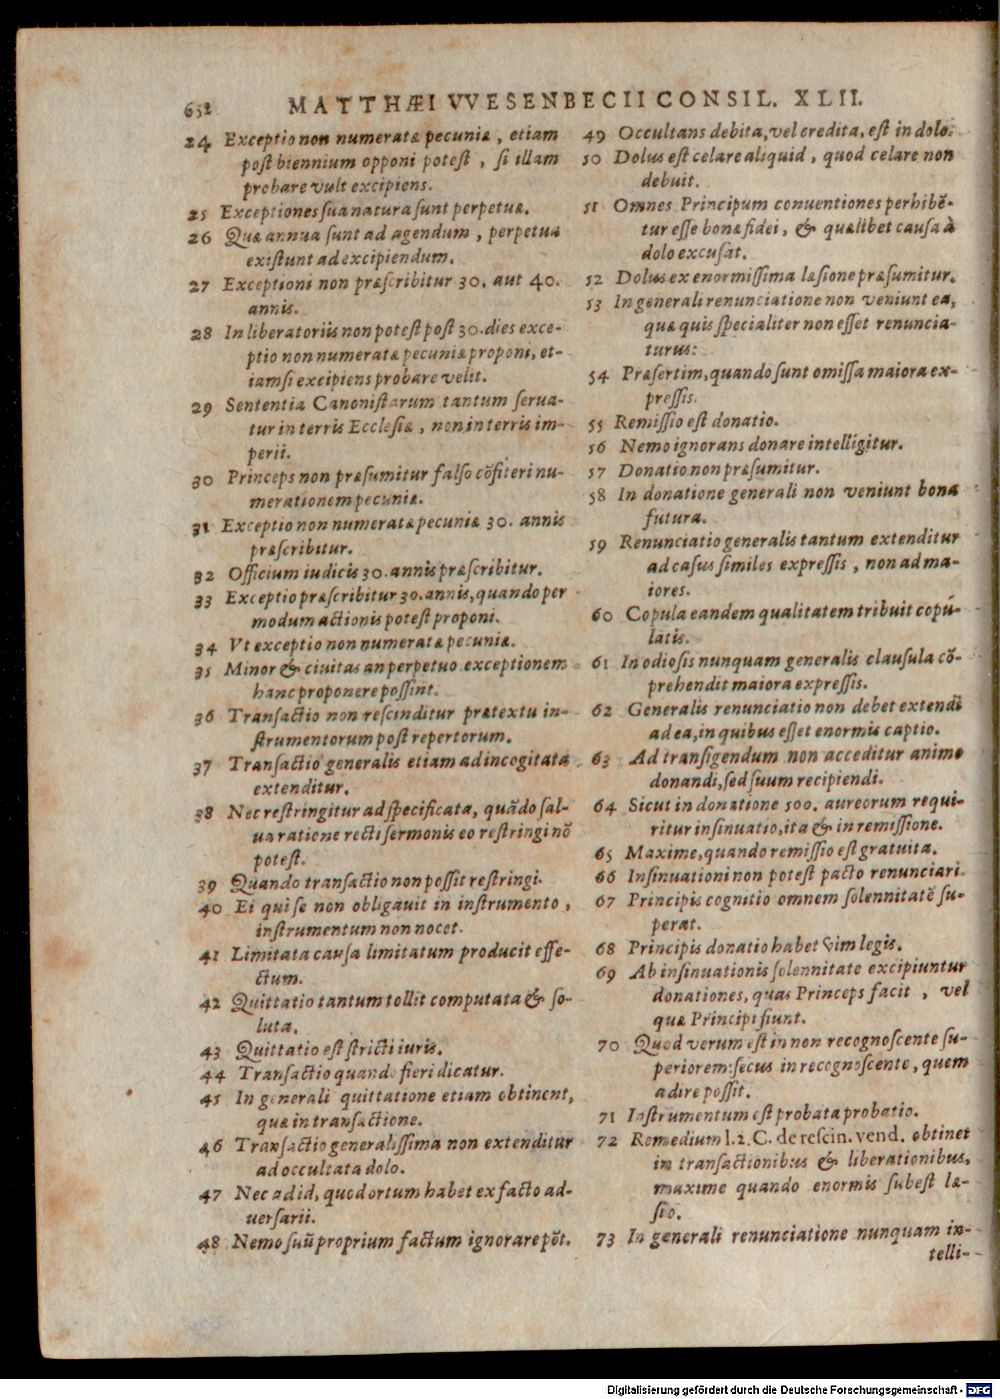 652 MATTHÆI VVESENBECII CONSIL. XLII.
24 Exceptio non numeratæ pecuniæ, etiam
post biennium opponi potest, si illam
probare vult excipiens.
25 Exceptiones sua natura sunt perpetuæ.
26 Quæ annua sunt ad agendum, perpetua
existunt ad excipiendum.
27 Exceptioni non præscribitur 30. aut 40.
annis.
28 In liberatoriis non potest post 30. dies exce-
ptio non numeratæ pecuniæ proponi, et-
iamsi excipiens probare velit.
29 Sententia Canonistarum tantum serua-
tur in terris Ecclesiæ, non in terris im-
perii.
30 Princeps non præsumitur falso cõfiteri nu-
merationem pecuniæ.
31 Exceptio non numeratæ pecuniæ 30. annis
præscribitur.
32 Officium iudicis 30. annis præscribitur.
33 Exceptio præscribitur 30. annis, quando per
modum actionis potest proponi.
34 Vt exceptio non numeratæ pecuniæ.
35 Minor & ciuitas an perpetuo exceptionem
hanc proponere possint.
36 Transactio non rescinditur prætextu in-
strumentorum post repertorum.
37 Transactio generalis etiam ad incogitata
extenditur.
38 Nec restringitur ad specificata, quãdo sal-
ua ratione recti sermonis eo restringi nõ
potest.
39 Quando transactio non possit restringi.
40 Ei qui se non obligauit in instrumento,
instrumentum non nocet.
41 Limitata causa limitatum producit effe-
ctum.
42 Quittatio tantum tollit computata & so-
luta.
43 Quittatio est stricti iuris.
44 Transactio quando fieri dicatur.
45 In generali quittatione etiam obtinent,
quæ in transactione.
46 Transactio generalissima non extenditur
ad occultata dolo.
47 Nec ad id, quod ortum habet ex facto ad-
uersarii.
48 Nemo suũ proprium factum ignorare põt.
49 Occultans debita, vel credita, est in dolo.
50 Dolus est celare aliquid, quod celare non
debuit.
51 Omnes Principum conuentiones perhibẽ-
tur esse bonæ fidei, & quælibet causa à
dolo excusat.
52 Dolus ex enormissima læsione præsumitur.
53 In generali renunciatione non veniunt ea,
quæ quis specialiter non esset renuncia-
turus:
54 Præsertim, quando sunt omissa maiora ex-
pressis.
55 Remissio est donatio.
56 Nemo ignorans donare intelligitur.
57 Donatio non præsumitur.
58 In donatione generali non veniunt bona
futura.
59 Renunciatio generalis tantum extenditur
ad casus similes expressis, non ad ma-
iores.
60 Copula eandem qualitatem tribuit copu-
latis.
61 In odiosis nunquam generalis clausula cõ-
prehendit maiora expressis.
62 Generalis renunciatio non debet extendi
ad ea, in quibus esset enormis captio.
63 Ad transigendum non acceditur animo
donandi, sed suum recipiendi.
64 Sicut in donatione 500. aureorum requi-
ritur insinuatio, ita & in remissione.
65 Maxime, quando remissio est gratuita.
66 Insinuationi non potest pacto renunciari.
67 Principis cognitio omnem solennitatẽ su-
perat.
68 Principis donatio habet vim legis.
69 Ab insinuationis solennitate excipiuntur
donationes, quas Princeps facit, vel
quæ Principi fiunt.
70 Quod verum est in non recognoscente su-
periorem: secus in recognoscente, quem
adire possit.
71 Instrumentum est probata probatio.
72 Remedium l. 2. C. de rescin. vend. obtinet
in transactionibus & liberationibus,
maxime quando enormis subest læ-
sio.
73 In generali renunciatione nunquam in-
telli-
Digitalisierung gefördert durch die Deutsche Forschungsgemeinschaft - DFG